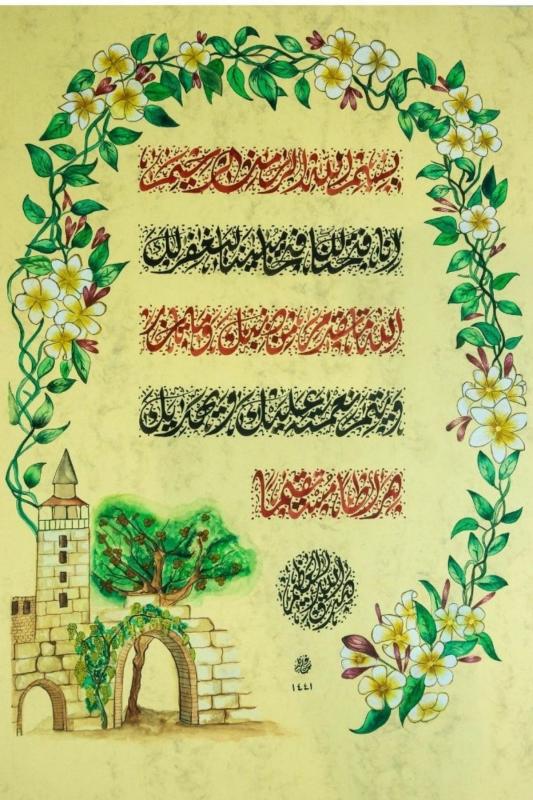 بسم الله الرحمن الرحيم
انا فتحنا لك فتحا مبينا ليغفر لك
الله ما تقدم من ذنبك وما تأخر
ويتم نعمته عليك ويهديك
صراطا مستقيما
صدق الله العظيم
١٤٤١